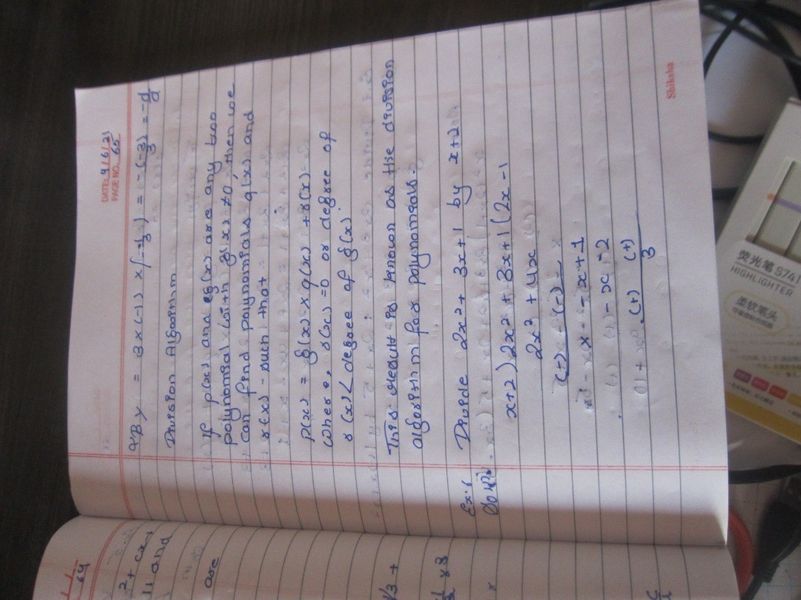 DATE: 9/6/21
PAGE NO. 65
αβγ = 3 × (-1) × (-1/3) = -(-3)/3 = -d/a
Division Algorithm
If p(x) and g(x) are any two
polynomial with g(x) ≠ 0, then we
can find polynomials q(x) and
r(x) - such that
p(x) = g(x) × q(x) + r(x)
Where, r(x) = 0 or degree of
r(x) < degree of g(x)
This result is known as the division
algorithm for polynomials.
Ex. 6 Divide 2x² + 3x + 1 by x + 2
Soln
x+2 ) 2x² + 3x + 1 ( 2x - 1
2x² + 4x
(-) (-)
- x + 1
- x - 2
(+) (+)
3
Shiksha
64
2 + cx
11 and
are
1/3 +
荧光笔 S741
HIGHLIGHTER
柔软笔头